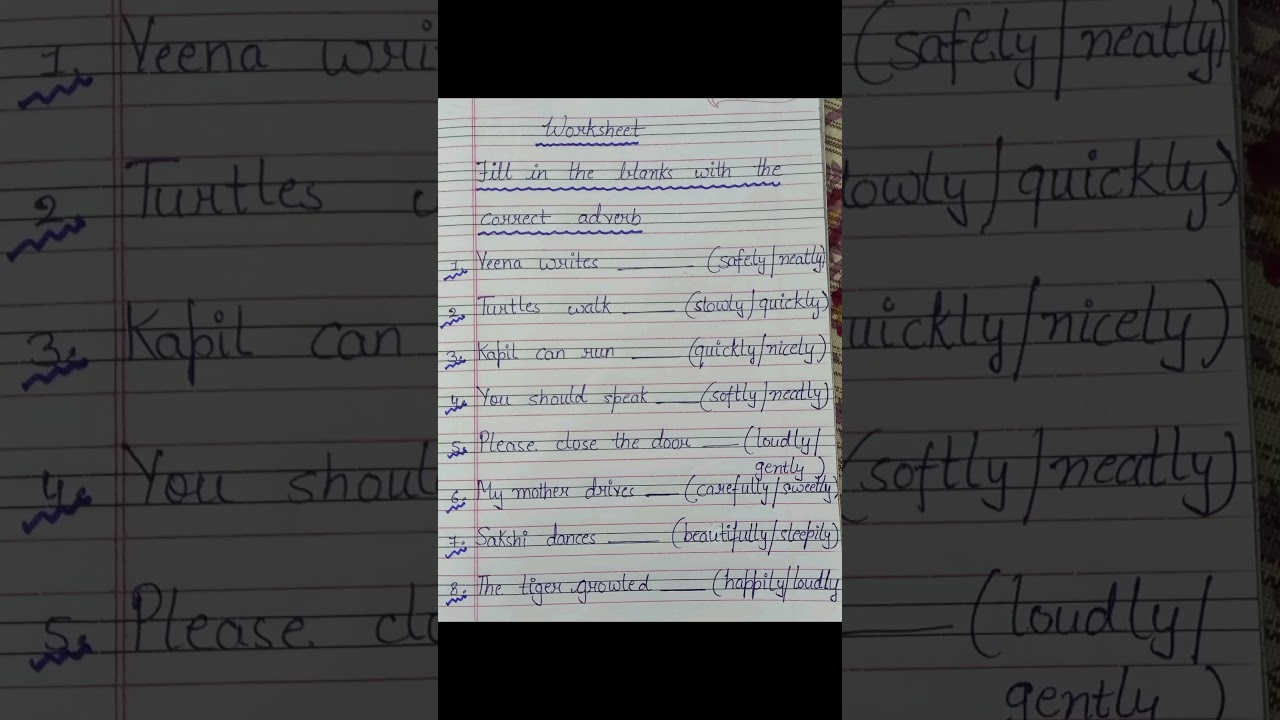 Worksheet
Fill in the blanks with the
correct adverb
1. Veena writes ______ (safely/neatly)
2. Turtles walk ______ (slowly/quickly)
3. Kapil can run ______ (quickly/nicely)
4. You should speak ______ (softly/neatly)
5. Please close the door ______ (loudly/
gently)
6. My mother drives ______ (carefully/sweetly)
7. Sakshi dances ______ (beautifully/sleepily)
8. The tiger growled ______ (happily/loudly